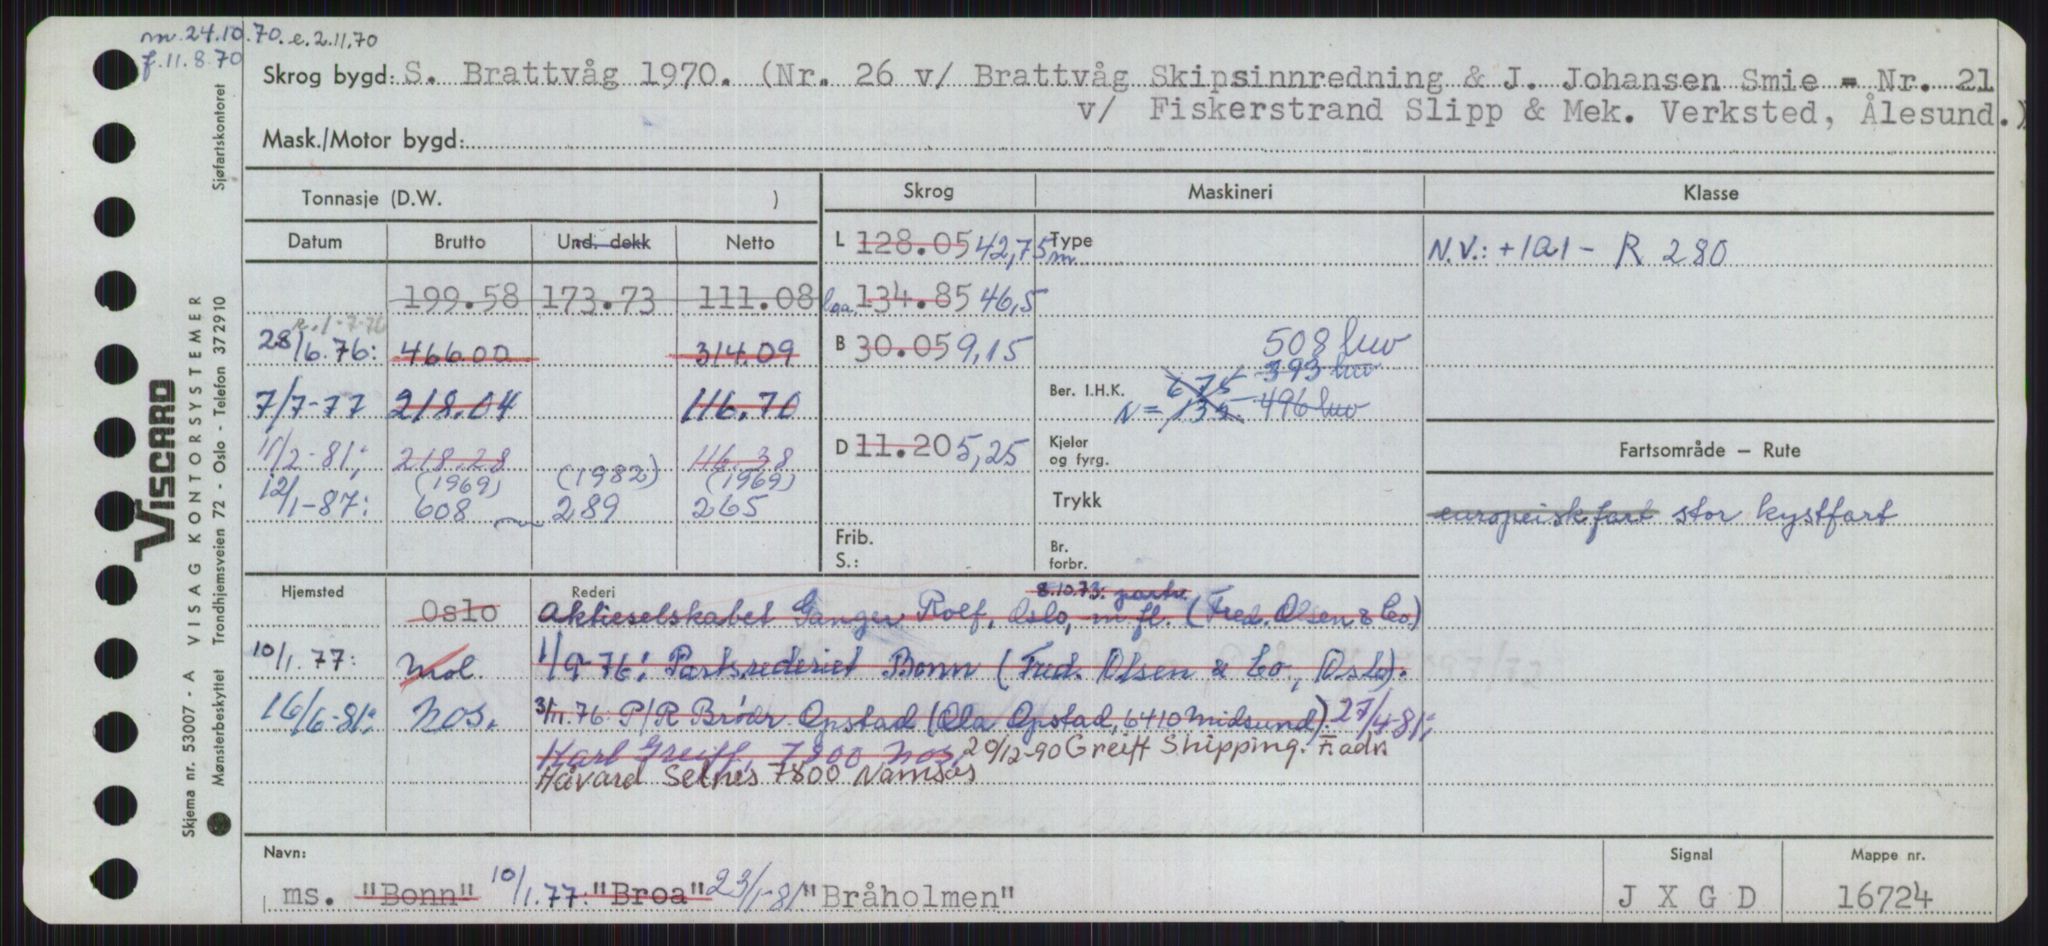 m. 24.10.70. e. 2.11.70
f. 11.8.70
Skrog bygd: S. Brattvåg 1970. (Nr. 26 v/ Brattvåg Skipsinnredning & J. Johansen Smie = Nr. 21
v/ Fiskerstrand Slipp & Mek. Verksted, Ålesund.)
Mask./Motor bygd:
Tonnasje (D.W. )
Skrog
Maskineri
Klasse
Datum Brutto Und. dekk Netto
L 128.05 42,75 m
Type
N.V.: + 1A1 - R 280
199.58 173.73 111.08
loa. 134.85 46,5
r. 1-7-76
28/6.76: 466.00 314.09
B 30.05 9,15
508 kw
393 kw
Ber. I.H.K. 675
N = 135 496 kw
7/7-77 218.04 116.70
11/2-81: 218.28 116.38
D 11.20 5,25
Kjeler
og fyrg.
Fartsområde — Rute
(1969) (1982) (1969)
12/1-87: 608 289 265
Trykk
europeisk fart stor kystfart
Frib.
S.:
Br.
forbr.
Hjemsted
Rederi
8.10.73: partr.
Oslo Aktieselskabet Ganger Rolf, Oslo, m.fl. (Fred. Olsen & Co.)
10/1.77: Mol. 1/9-76: Partsrederiet Bonn (Fred. Olsen & Co., Oslo).
16/6-81: Nos. 3/11.76: P/R Brødr. Opstad (Ola Opstad, 6410 Midsund). 27/4-81:
Karl Greiff, 7800 Nos. 20/12-90 Greiff Shipping. F.adr.
Håvard Selnes 7800 Namsos
Navn:
Signal
Mappe nr.
ms. "Bonn" 10/1.77: "Broa" 23/1-81: "Bråholmen"
J X G D
16724
VISCARD
VISAG KONTORSYSTEMER
Skjema nr. 53007 - A
Mønsterbeskyttet Trondhjemsveien 72 - Oslo - Telefon 372910
Sjøfartskontoret